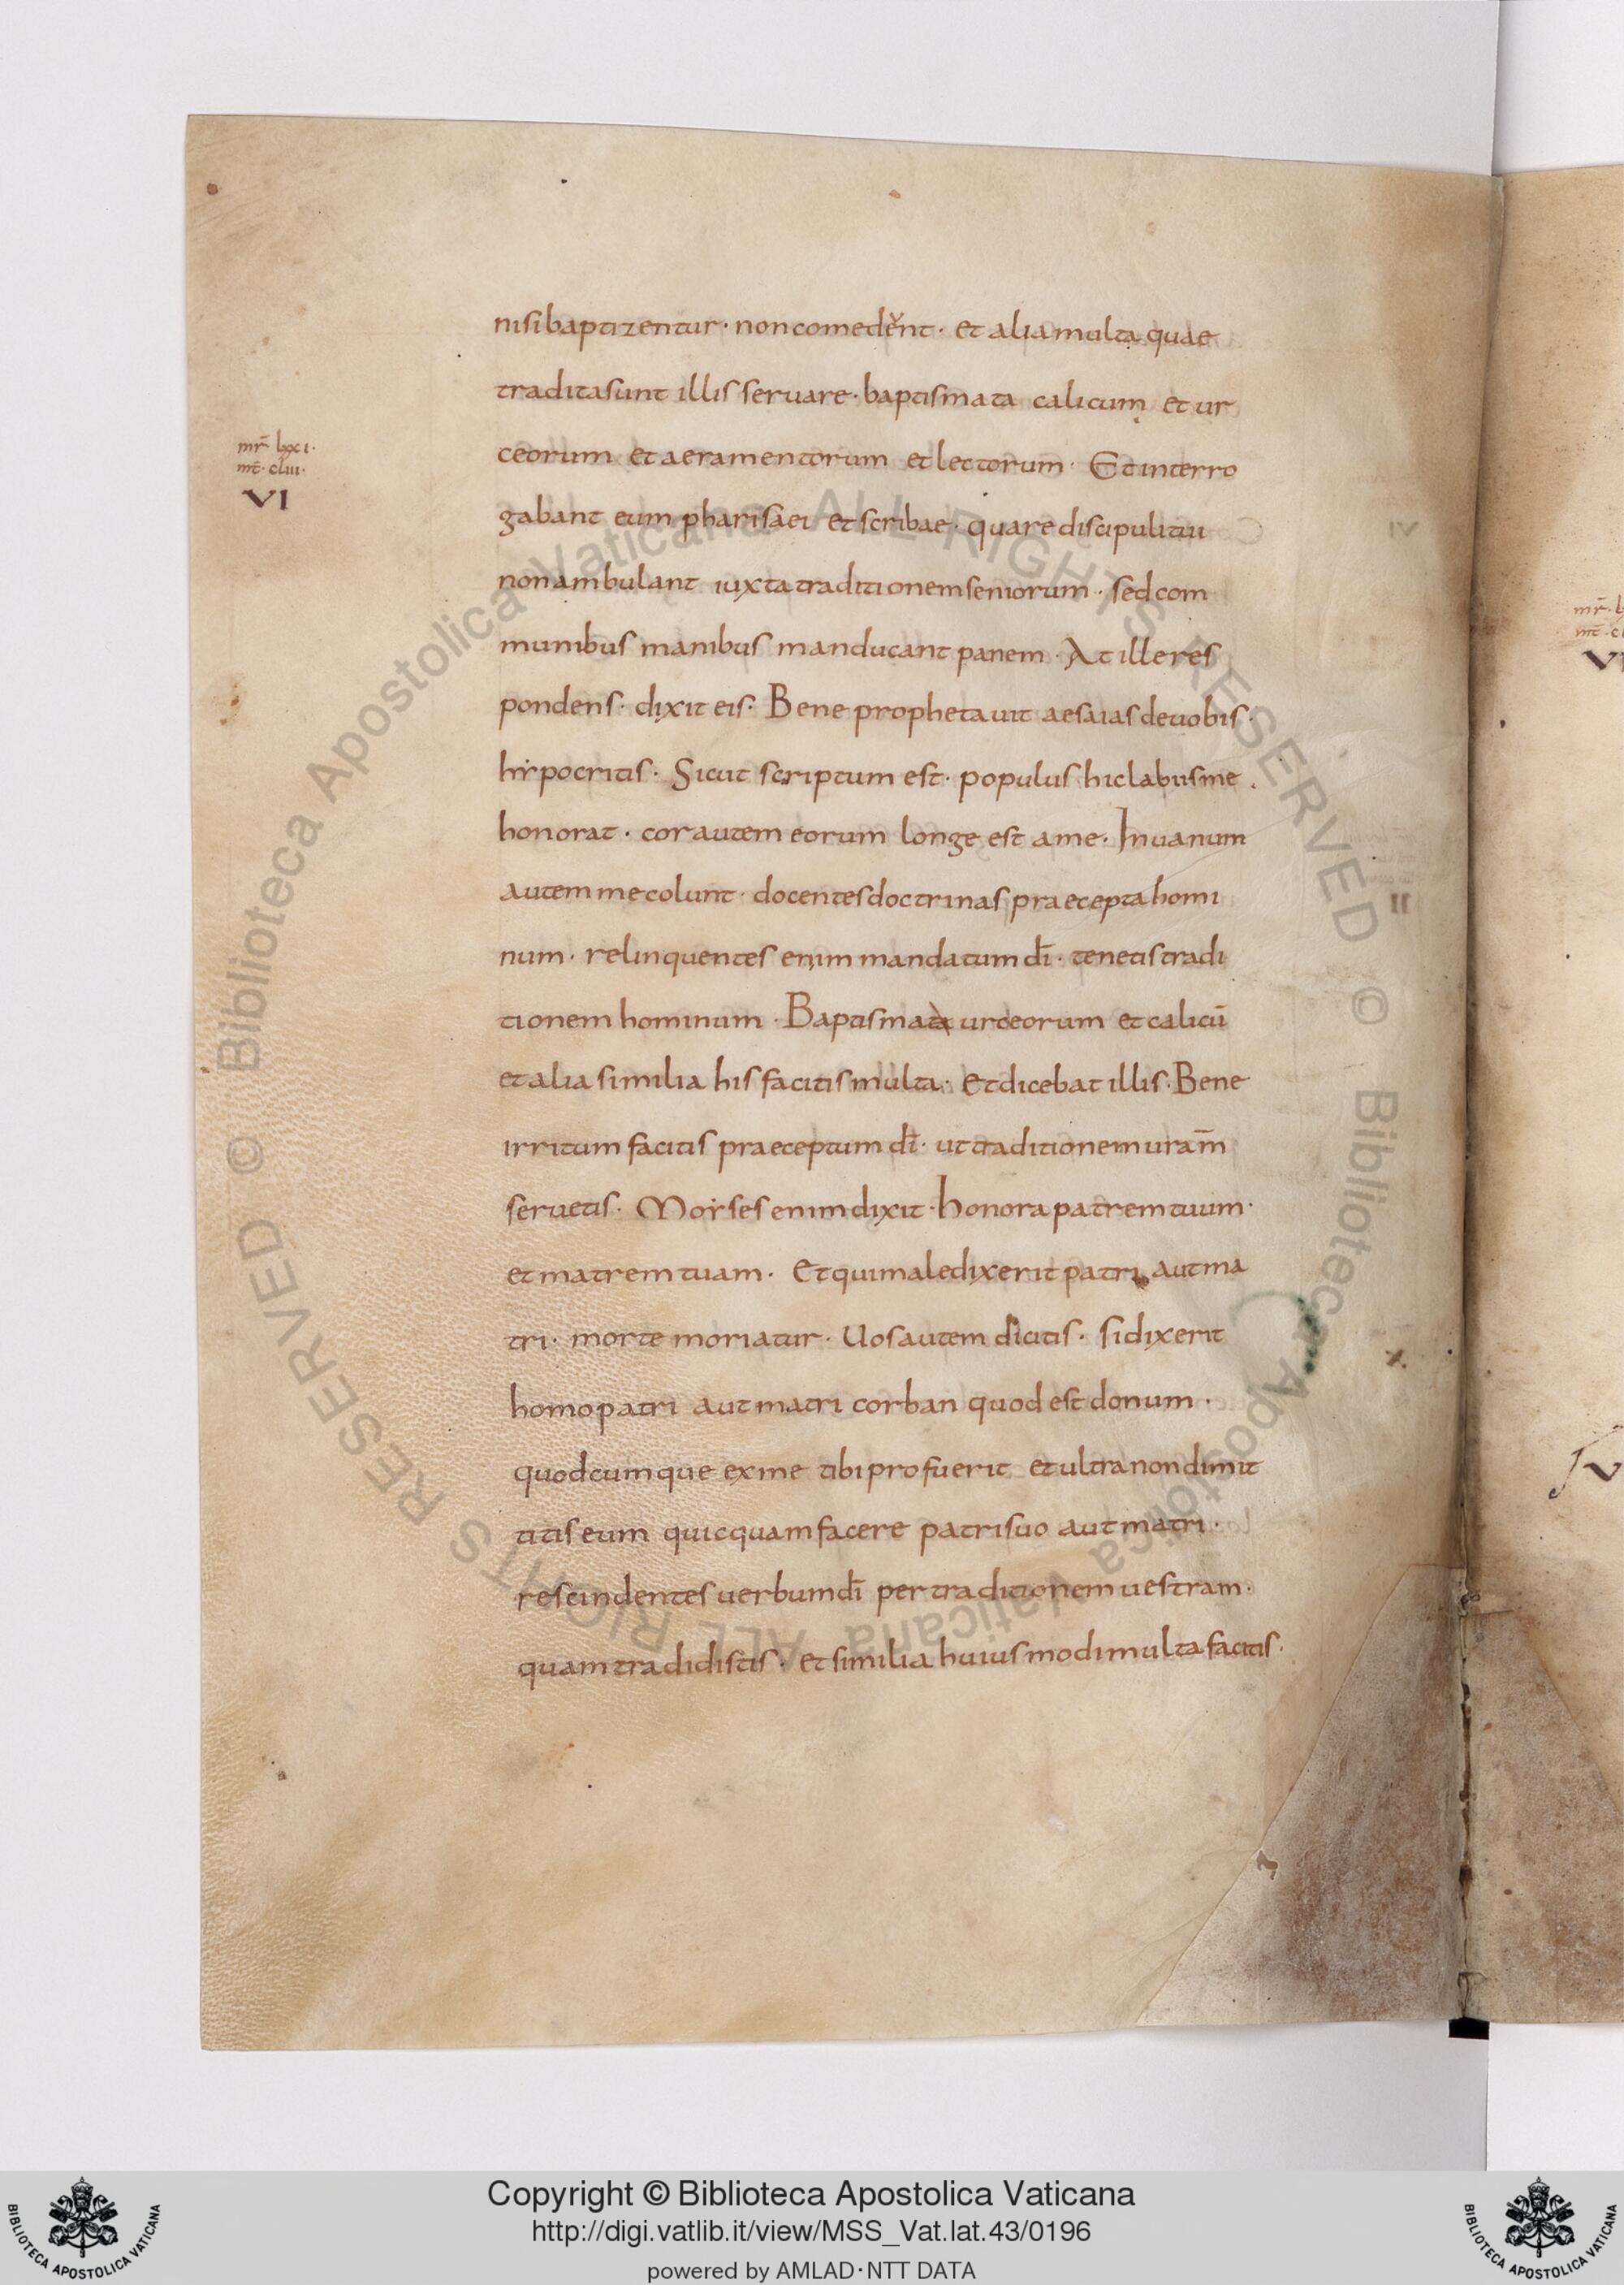 mr̄ lxxi·
mt̄· cliii·
VI
nisi baptizentur · non comedent · et alia multa quae
tradita sunt illis seruare · baptismata calicum et ur
ceorum et aeramentorum et lectorum · Et interro
gabant eum pharisaei et scribae · quare discipuli tui
non ambulant iuxta traditionem seniorum · sed com
munibus manibus manducant panem · At ille res
pondens · dixit eis · Bene prophetauit aesaias de uobis ·
hẏpocritis · Sicut scriptum est · populus hic labiis me
honorat · cor autem eorum longe est a me · In uanum
autem me colunt · docentes doctrinas praecepta homi
num · relinquentes enim mandatum dī · tenetis tradi
tionem hominum · Baptismata urceorum et calicū
et alia similia his facitis multa · Et dicebat illis · Bene
irritum facitis praeceptum dī · ut traditionem uram̄
seruetis · Moẏses enim dixit · honora patrem tuum ·
et matrem tuam · Et qui maledixerit patri aut ma
tri · morte moriatur · Uos autem dicitis · si dixerit
homo patri aut matri corban quod est donum ·
quodcumque ex me tibi profuerit et ultra non dimit
titis eum quicquam facere patri suo aut matri ·
rescindentes uerbum dī per traditionem uestram ·
quam tradidistis · et similia huiusmodi multa facitis ·
Biblioteca Apostolica Vaticana ALL RIGHTS RESERVED © Biblioteca Apostolica Vaticana ALL RIGHTS RESERVED ©
Copyright © Biblioteca Apostolica Vaticana
http://digi.vatlib.it/view/MSS_Vat.lat.43/0196
powered by AMLAD·NTT DATA
BIBLIOTECA APOSTOLICA VATICANA
BIBLIOTECA APOSTOLICA VATICANA